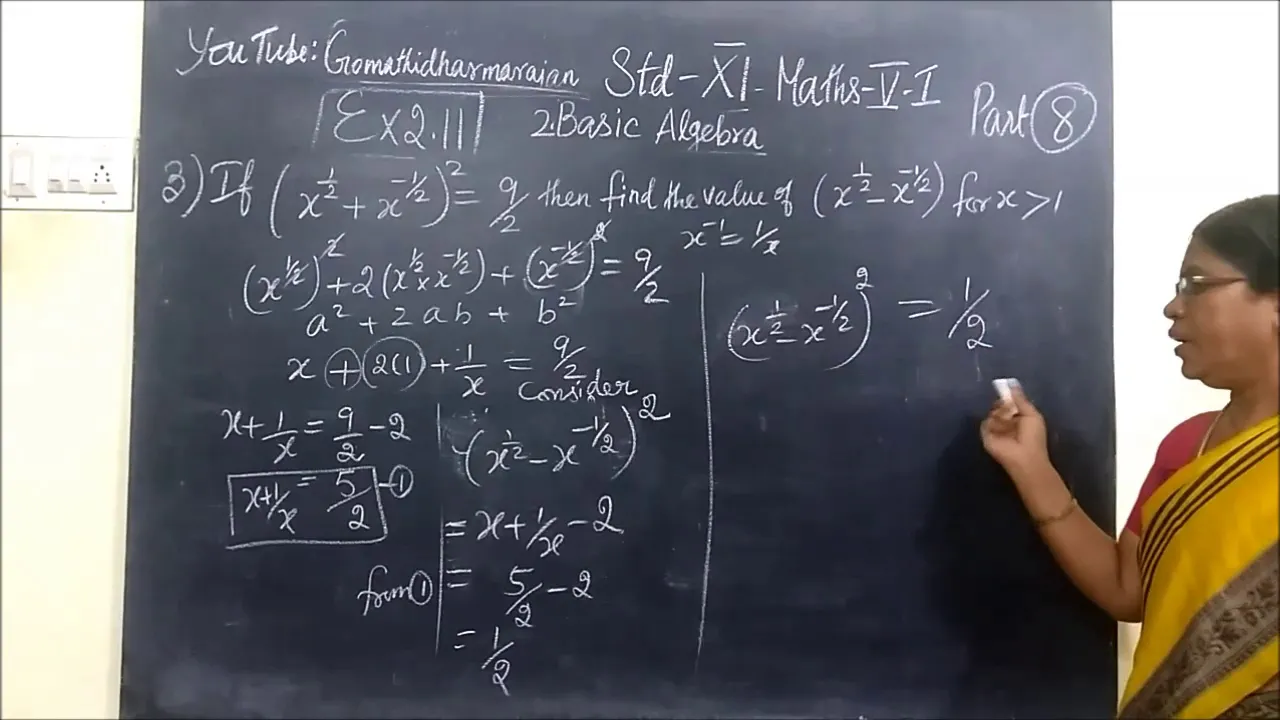 YouTube: Gomathidharmarajan Std-XI-Maths-V-I
Ex 2.11 2.Basic Algebra Part 8
3) If (x^1/2 + x^-1/2)^2 = 9/2 then find the value of (x^1/2 - x^-1/2) for x > 1
x^-1 = 1/x
(x^1/2)^2 + 2(x^1/2 × x^-1/2) + (x^-1/2)^2 = 9/2
a^2 + 2ab + b^2
x + 2(1) + 1/x = 9/2
x + 1/x = 9/2 - 2
x + 1/x = 5/2 - ①
Consider
(x^1/2 - x^-1/2)^2
= x + 1/x - 2
from ① = 5/2 - 2
= 1/2
(x^1/2 - x^-1/2)^2 = 1/2